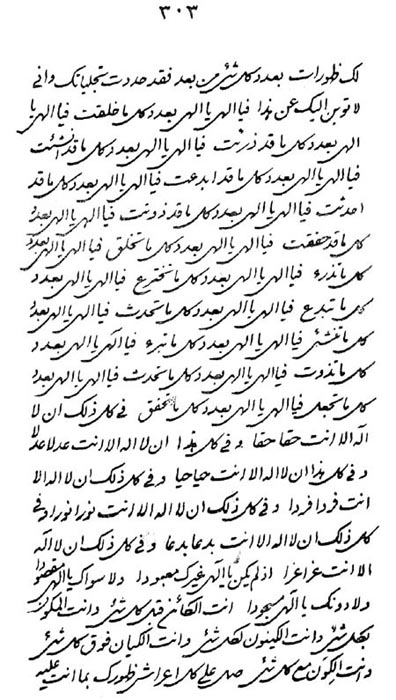 ٣٠٣
لک ظهورات بعدد کل شئ من بعد فقد حددت تجلیاتک وانی
لاتوبن الیک عن هذا فیا الهی یا الهی بعدد کل ما خلقت فیا الهی یا
الهی بعدد کل ما قد ذرئت فیا الهی یا الهی بعدد کل ما قد انشئت
فیا الهی یا الهی بعدد کل ما قد ابدعت فیا الهی یا الهی بعدد کل ما قد
احدثت فیا الهی یا الهی بعدد کل ما قد ذوتت فیا الهی یا الهی بعدد
کل ما قد حققت فیا الهی یا الهی بعدد کل ما تخلق فیا الهی یا الهی بعدد
کل ما تذرء فیا الهی یا الهی بعدد کل ما تخترع فیا الهی یا الهی بعدد
کل ما تبدع فیا الهی یا الهی بعدد کل ما تحدث فیا الهی یا الهی بعدد
کل ما تنشئ فیا الهی یا الهی بعدد کل ما تبرء فیا الهی یا الهی بعدد
کل ما تذوت فیا الهی یا الهی بعدد کل ما تحدث فیا الهی یا الهی بعدد
کل ما تجعل فیا الهی یا الهی بعدد کل ما تحقق فی کل ذلک ان لا
اله الا انت حقا حقا و فی کل هذا ان لا اله الا انت عدلا عدلا
و فی کل هذا ان لا اله الا انت حیا حیا و فی کل ذلک ان لا اله الا
انت فردا فردا و فی کل ذلک ان لا اله الا انت نورا نورا و فی
کل ذلک ان لا اله الا انت بدعا بدعا و فی کل ذلک ان لا اله
الا انت عزا عزا اذ لم یکن یا الهی غیرک معبودا ولا سواک یا الهی مقصودا
ولا دونک یا الهی مسجودا انت الکائن قبل کل شئ وانت المکون
بعد کل شئ وانت الکینون لکل شئ وانت الکیان فوق کل شئ
وانت المکون مع کل شئ صل علی کل اعراش ظهورک بما انت علیه